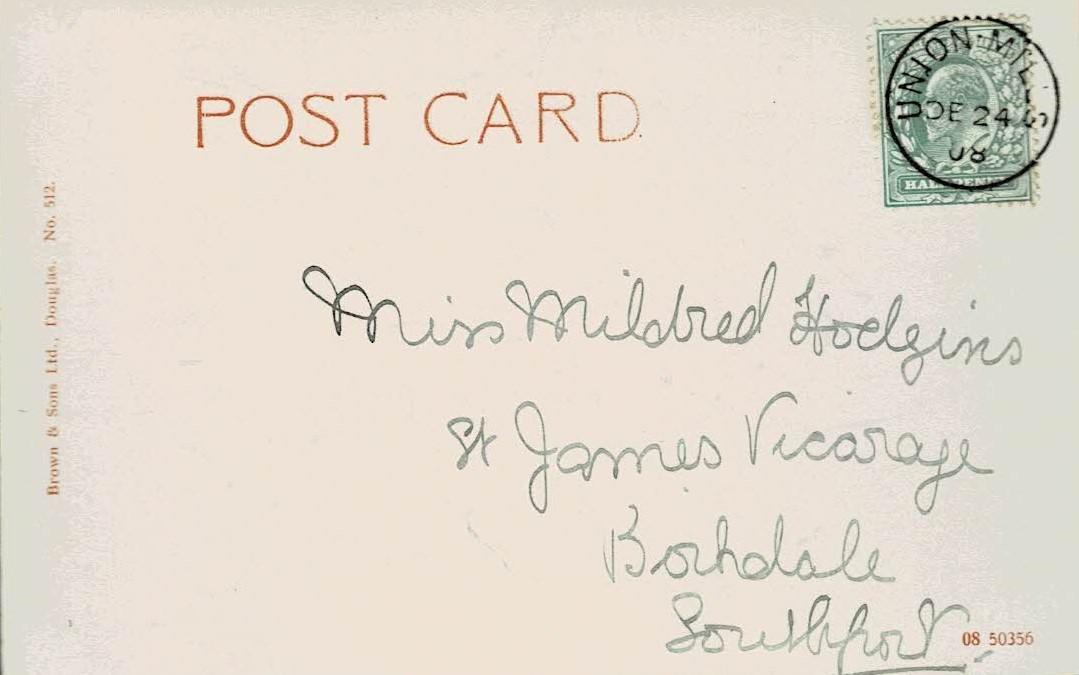 POST CARD
UNION MILLS
DE 24
08
HALFPENNY
Brown & Sons Ltd., Douglas. No. 512.
Miss Mildred Hodgins
St James Vicarage
Birkdale
Southport
08 50356